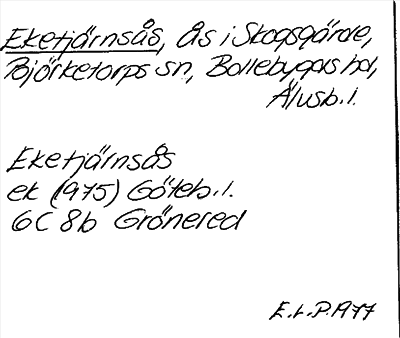 Eketjärnsås, Ås i Skogsgärde,
Björketorps sn, Bollebygds hd,
Älvsb. l.
Eketjärnsås
ek (1975) Göteb. l.
6C 8b Grönered
E. L. P. 1977